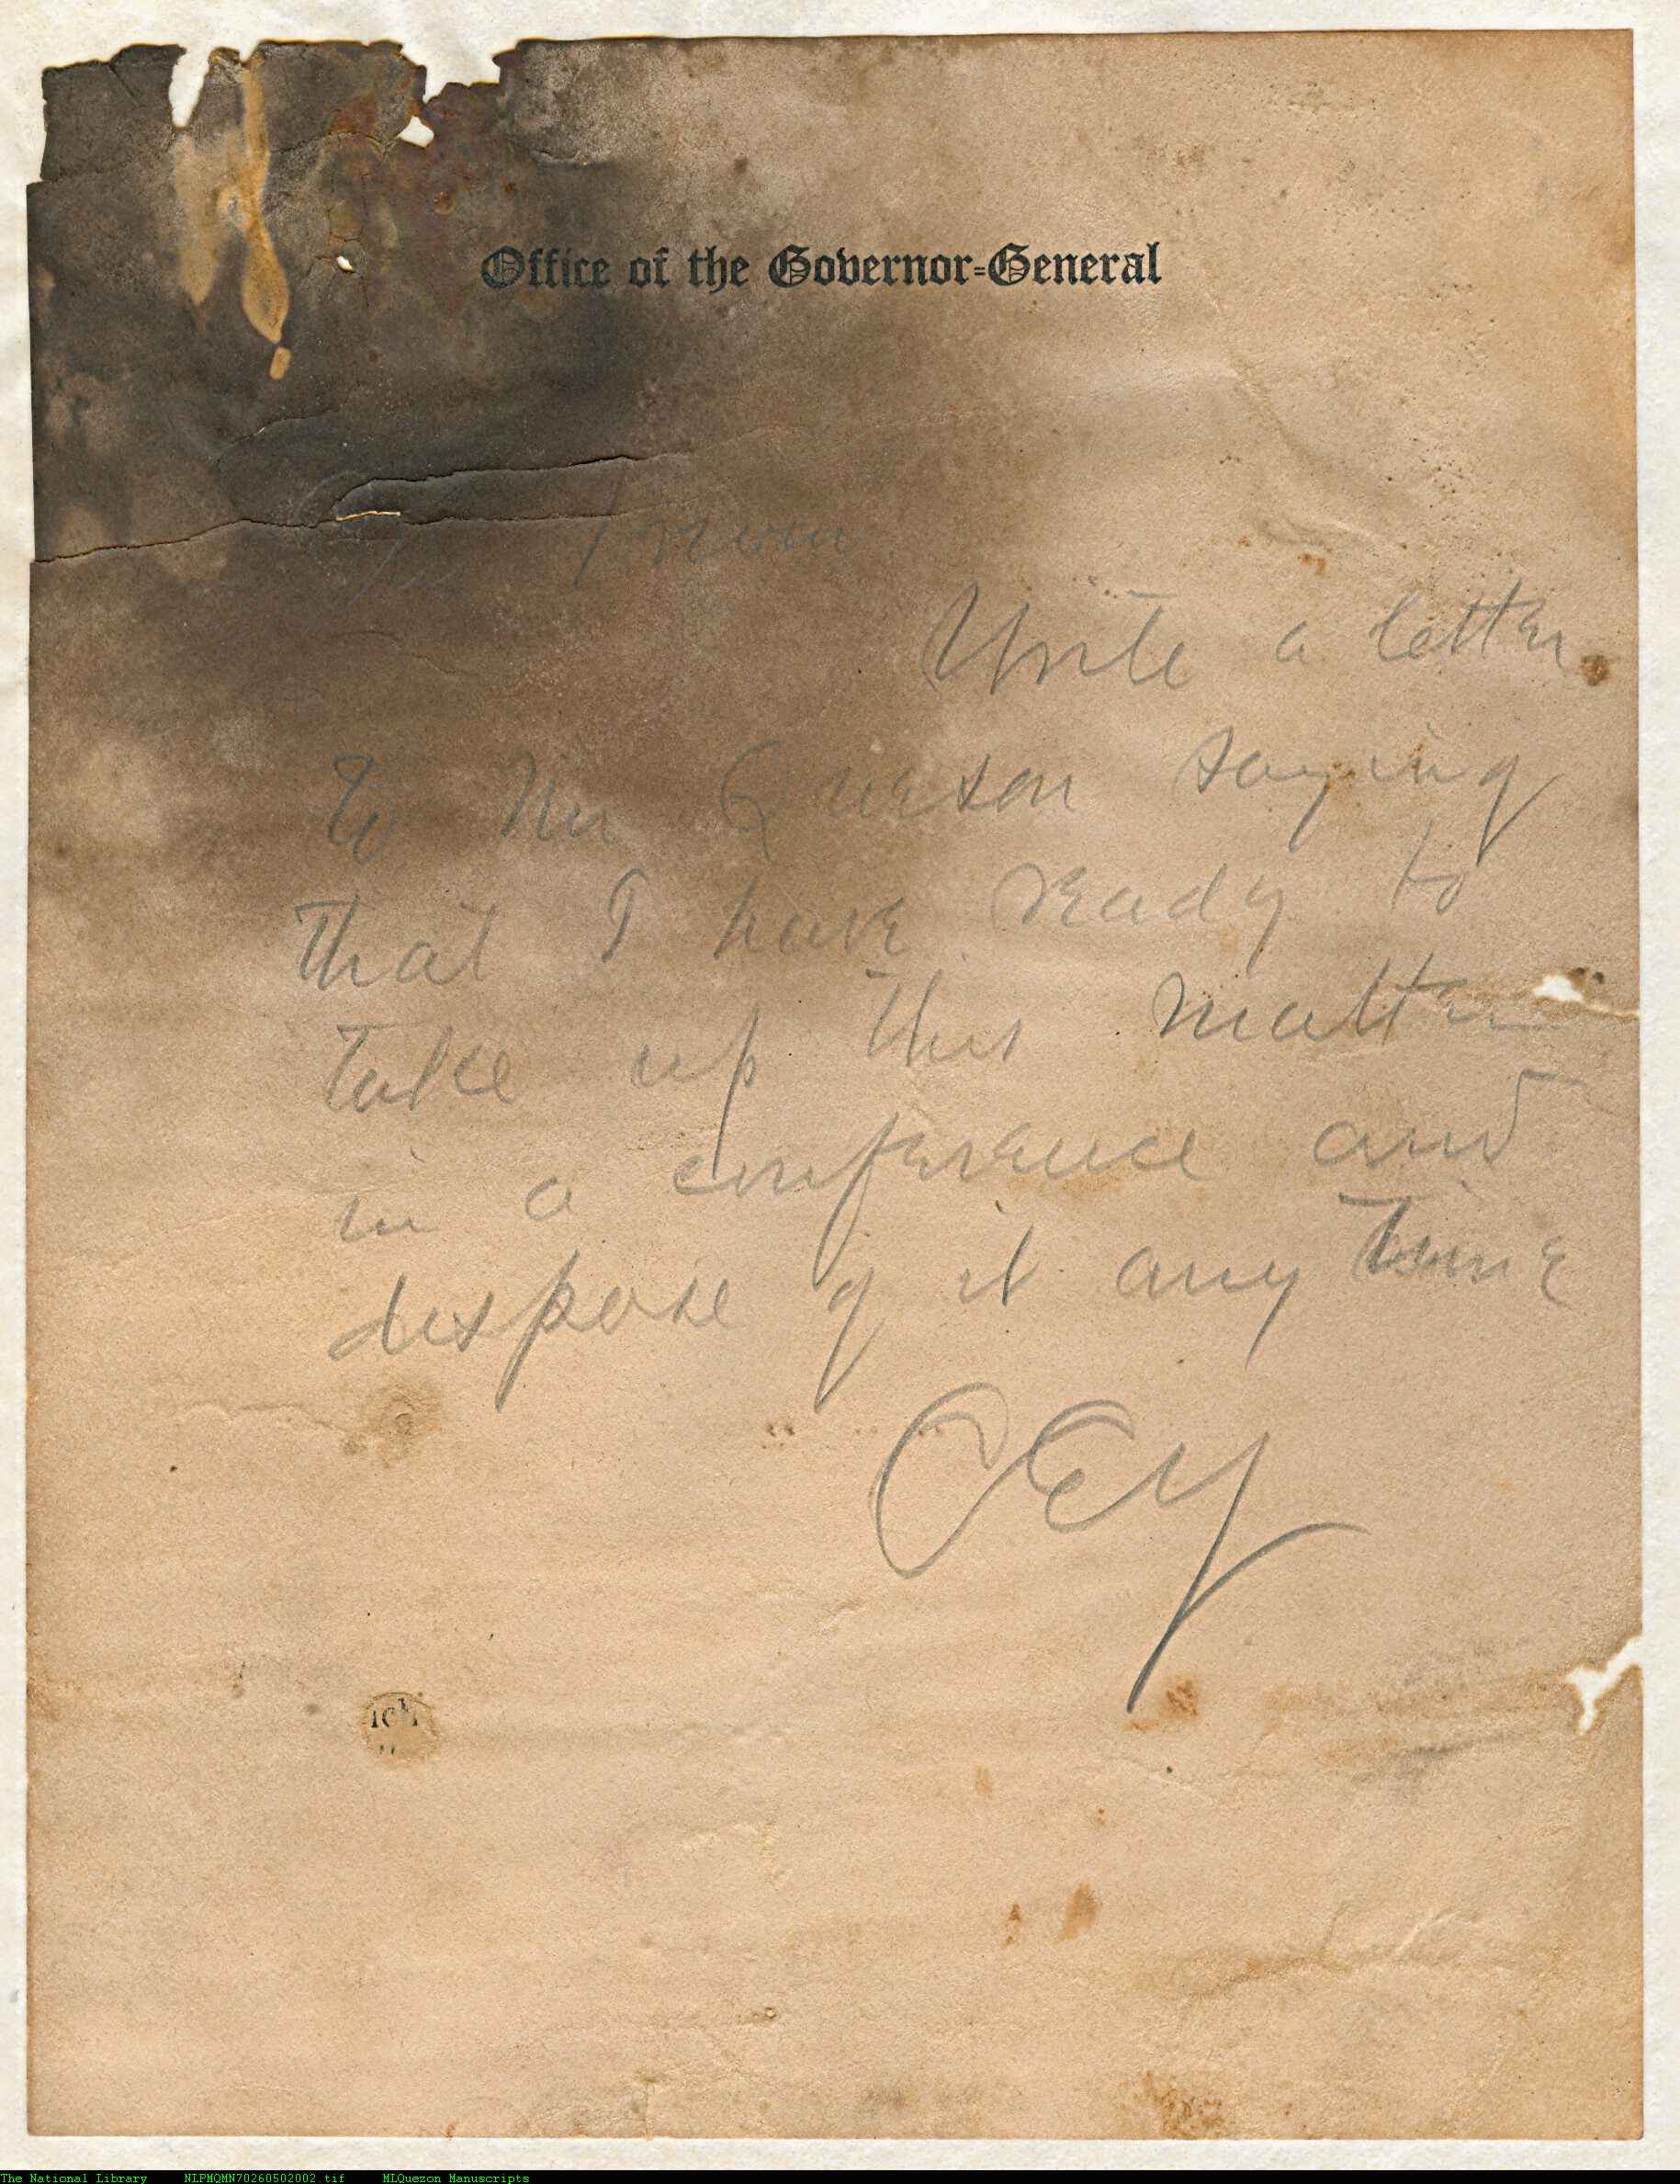 Office of the Governor-General
Write a letter
to Mr Quezon saying
that I have ready to
take up this matter
in a conference and
dispose of it any time
The National Library NLPMQMN70260502002.tif MLQuezon Manuscripts